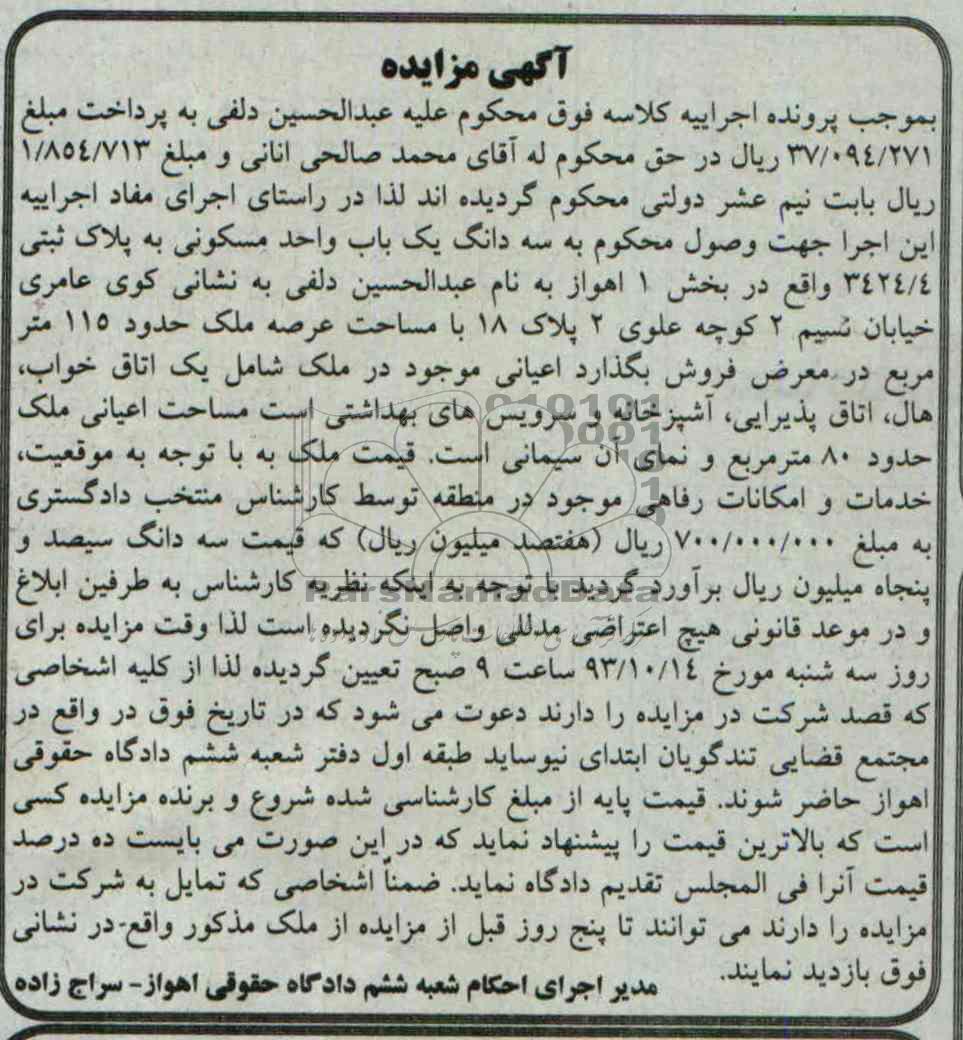 آگهی مزایده
بموجب پرونده اجراییه کلاسه فوق محکوم علیه عبدالحسین دلفی به پرداخت مبلغ
۳۷/۰۹٤/۲۷۱ ریال در حق محکوم له آقای محمد صالحی انانی و مبلغ ۱/۸٥٤/۷۱۳
ریال بابت نیم عشر دولتی محکوم گردیده اند لذا در راستای اجرای مفاد اجراییه
این اجرا جهت وصول محکوم به سه دانگ یک باب واحد مسکونی به پلاک ثبتی
۳٤۲٤/٤ واقع در بخش ۱ اهواز به نام عبدالحسین دلفی به نشانی کوی عامری
خیابان نسیم ۲ کوچه علوی ۲ پلاک ۱۸ با مساحت عرصه ملک حدود ۱۱٥ متر
مربع در معرض فروش بگذارد اعیانی موجود در ملک شامل یک اتاق خواب،
هال، اتاق پذیرایی، آشپزخانه و سرویس های بهداشتی است مساحت اعیانی ملک
حدود ۸۰ مترمربع و نمای آن سیمانی است. قیمت ملک به با توجه به موقعیت،
خدمات و امکانات رفاهی موجود در منطقه توسط کارشناس منتخب دادگستری
به مبلغ ۷۰۰/۰۰۰/۰۰۰ ریال (هفتصد میلیون ریال) که قیمت سه دانگ سیصد و
پنجاه میلیون ریال برآورد گردید با توجه به اینکه نظریه کارشناس به طرفین ابلاغ
و در موعد قانونی هیچ اعتراضی مدللی واصل نگردیده است لذا وقت مزایده برای
روز سه شنبه مورخ ۹۳/۱۰/۱٤ ساعت ۹ صبح تعیین گردیده لذا از کلیه اشخاصی
که قصد شرکت در مزایده را دارند دعوت می شود که در تاریخ فوق در واقع در
مجتمع قضایی تندگویان ابتدای نیوساید طبقه اول دفتر شعبه ششم دادگاه حقوقی
اهواز حاضر شوند. قیمت پایه از مبلغ کارشناسی شده شروع و برنده مزایده کسی
است که بالاترین قیمت را پیشنهاد نماید که در این صورت می بایست ده درصد
قیمت آنرا فی المجلس تقدیم دادگاه نماید. ضمناً اشخاصی که تمایل به شرکت در
مزایده را دارند می توانند تا پنج روز قبل از مزایده از ملک مذکور واقع در نشانی
فوق بازدید نمایند.
مدیر اجرای احکام شعبه ششم دادگاه حقوقی اهواز- سراج زاده
ParsNamadData